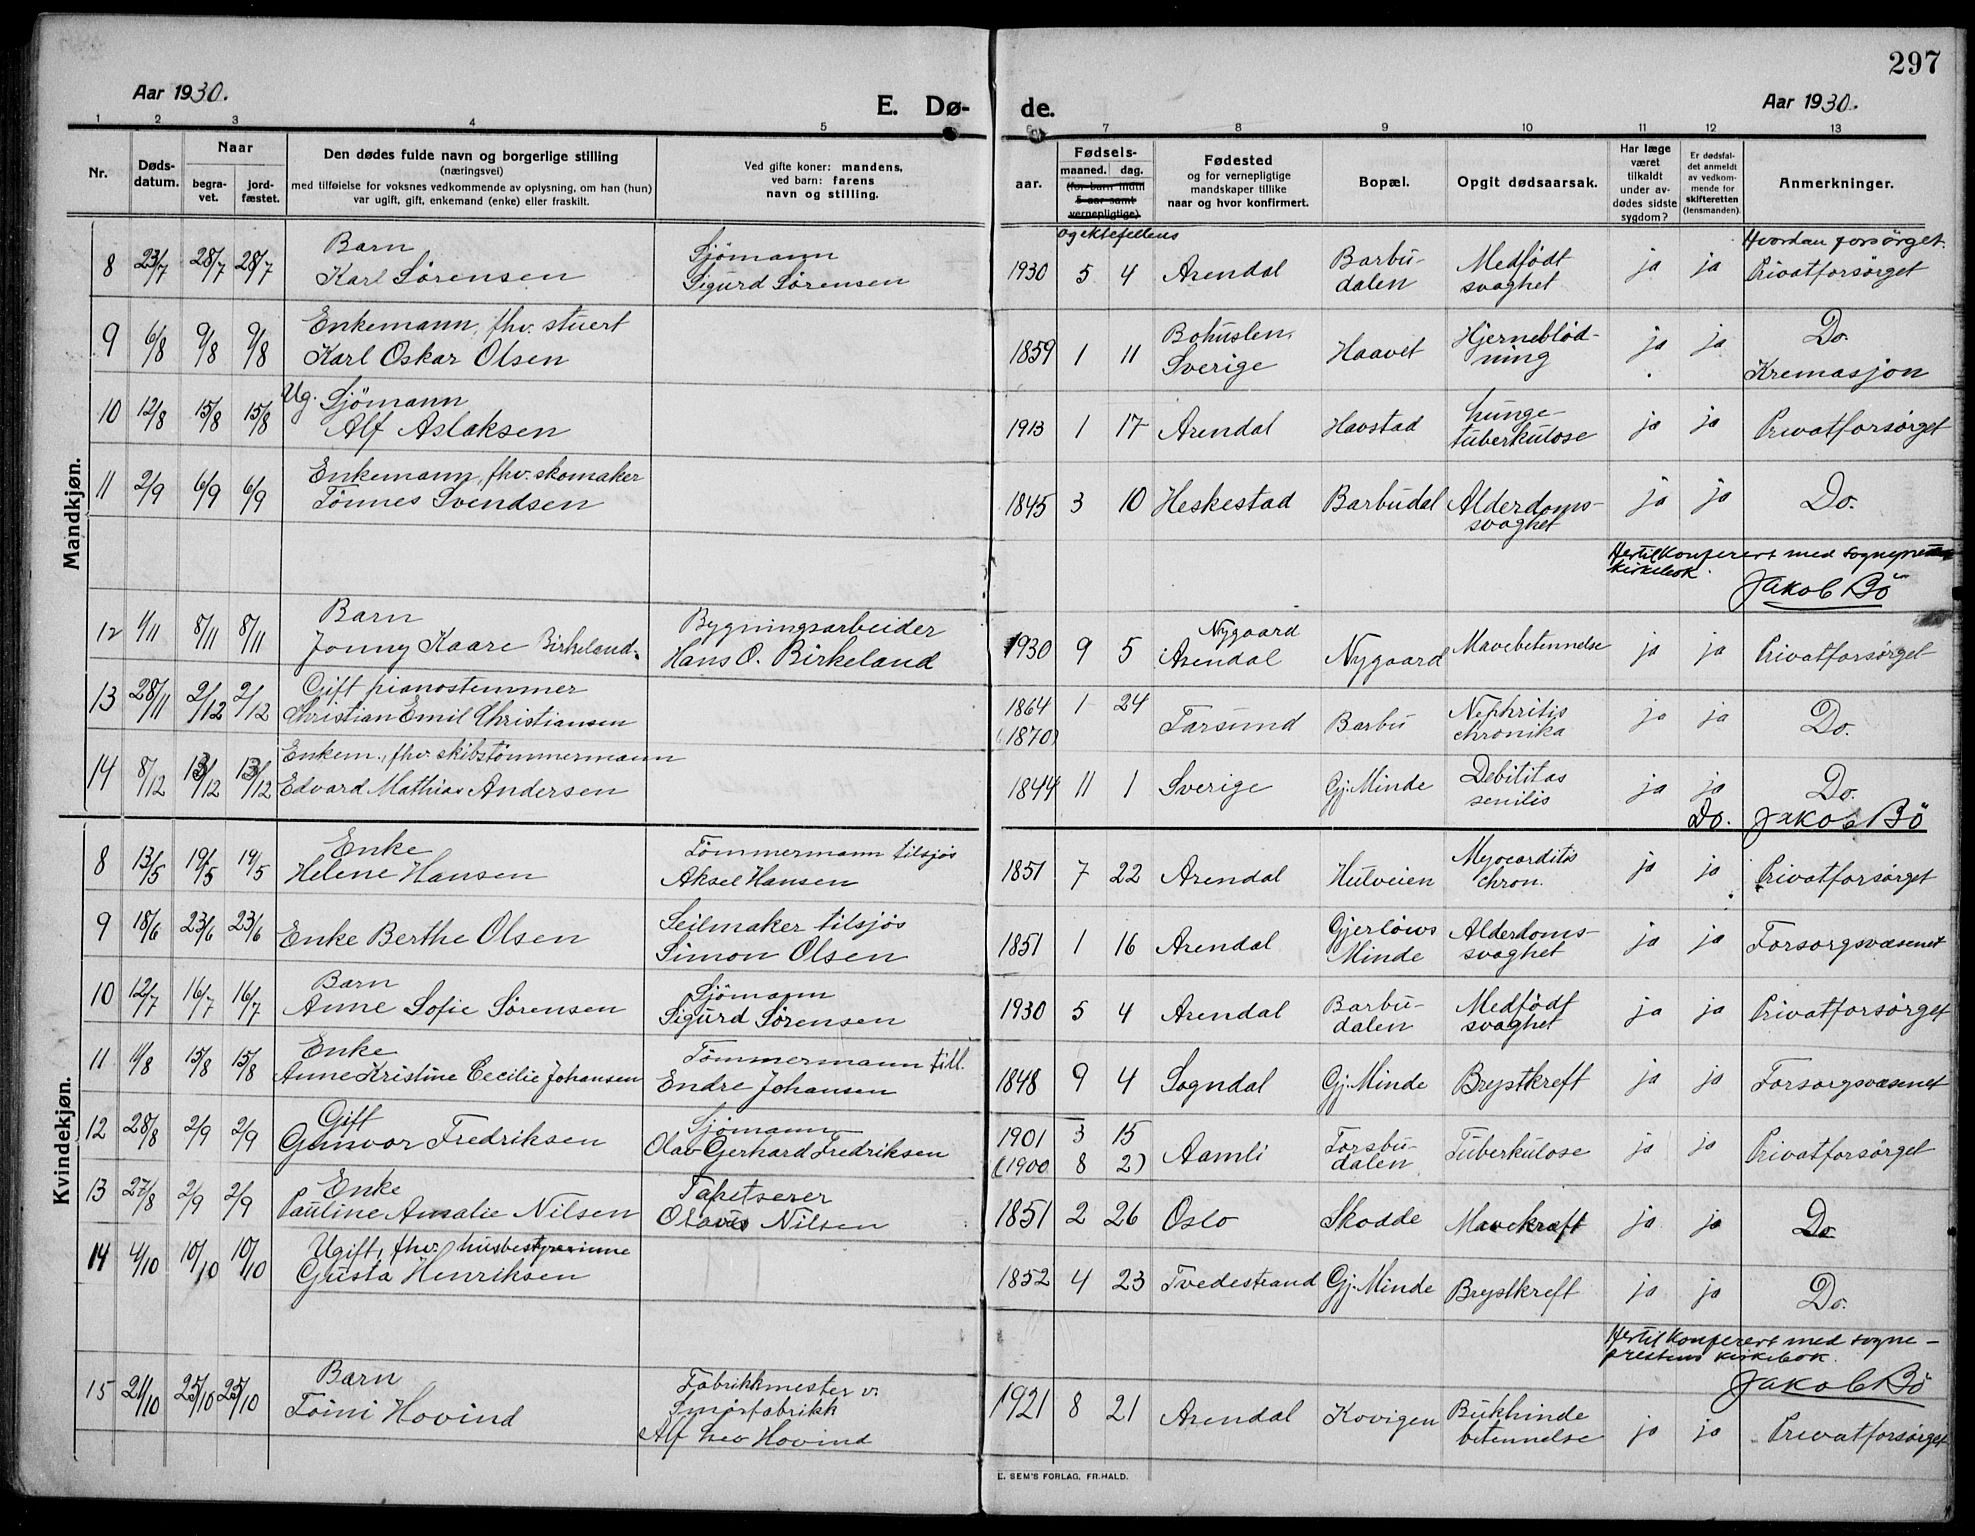 297
Aar 1930.
E. Dø-
de.
Aar 1930.
1 2 3 4 5 6 7 8 9 10 11 12 13
Nr.
Døds-
datum.
Naar
begra-
vet.
jord-
fæstet.
Den dødes fulde navn og borgerlige stilling
(næringsvei)
med tilføielse for voksnes vedkommende av oplysning, om han (hun)
var ugift, gift, enkemand (enke) eller fraskilt.
Ved gifte koner: mandens,
ved barn: farens
navn og stilling.
aar.
Fødsels-
maaned. dag.
(for barn indtil
5 aar samt
vernepligtige)
og ektefellens
Fødested
og for vernepligtige
mandskaper tillike
naar og hvor konfirmert.
Bopæl.
Opgit dødsaarsak.
Har læge
været
tilkaldt
under av-
dødes sidste
sygdom?
Er dødsfal-
det anmeldt
av vedkom-
mende for
skifteretten
(lensmanden).
Anmerkninger.
Hvordan forsörget.
Mandkjøn.
8 23/7 28/7 28/7 Barn
Karl Sörensen
Sjömann
Sigurd Sörensen
1930 5 4 Arendal Barbu-
dalen
Medfödt
svaghet
ja ja Privatforsörget
9 6/8 9/8 9/8 Enkemann, fhv. stuert
Karl Oskar Olsen
1859 1 11 Bohuslen,
Sverige
Haavet Hjerneblöd-
ning
ja ja Do.
Kremasjon
10 12/8 15/8 15/8 Ug. Sjömann
Alf Aslaksen
1913 1 17 Arendal Havstad Lunge-
tuberkulose
ja ja Privatforsörget
11 2/9 6/9 6/9 Enkemann, fhv. skomaker
Tönnes Svendsen
1845 3 10 Heskestad Barbudal Alderdoms-
svaghet
ja ja Do.
Hertil konferert med sogneprestens
kirkebok.
Jakob Bö
12 1/11 8/11 8/11 Barn
Jonny Kaare Birkeland.
Bygningsarbeider
Hans O. Birkeland
1930 9 5 Nygaard
Arendal
Nygaard Mavebetennelse ja ja Privatforsörget
13 28/11 2/12 2/12 Gift pianostemmer
Christian Emil Christiansen
1864
(1870)
1 24 Farsund Barbu Nephritis
chronika
ja ja Do.
14 8/12 13/12 13/12 Enkem., fhv. skibstömmermann
Edvard Mathias Andersen
1844 11 1 Sverige Gj. Minde Debilitas
senilis
ja ja Do.
Do. Jakob Bö
Kvindekjøn.
8 13/5 19/5 19/5 Enke
Helene Hansen
Tömmermann tilsjös
Aksel Hansen
1851 7 22 Arendal Hulveien Myocarditis
chron.
ja ja Privatforsörget
9 18/6 23/6 23/6 Enke Berthe Olsen
Seilmaker tilsjös
Simon Olsen
1851 1 16 Arendal Gjerlöws
Minde
Alderdoms-
svaghet
ja ja Forsorgsvæsenet
10 12/7 16/7 16/7 Barn
Anne Sofie Sörensen
Sjömann
Sigurd Sörensen
1930 5 4 Arendal Barbu-
dalen
Medfödt
svaghet
ja ja Privatforsörget
11 11/8 15/8 15/8 Enke
Anne Kristine Cecilie Johansen
Tömmermann tidl.
Endre Johansen
1848 9 4 Sogndal Gj. Minde Brystkreft ja ja Forsorgsvæsenet
12 28/8 2/9 2/9 Gift
Gunvor Fredriksen
Sjömann
Olav Gerhard Fredriksen
1901 3 15
(1900 8 2)
Aamli Torsbu-
dalen
Tuberkulose ja ja Privatforsörget
13 27/8 2/9 2/9 Enke
Pauline Amalie Nilsen
Tapetserer
Olavus Nilsen
1851 2 26 Oslo Skodde Mavekræft ja ja Do.
14 4/10 10/10 10/10 Ugift, fhv. husbestyrerinne
Gusta Henriksen
1852 4 23 Tvedestrand Gj. Minde Brystkreft ja ja Do.
Hertil konferert med sogne-
prestens kirkebok.
Jakob Bö
15 21/10 25/10 25/10 Barn
Toini Hovind
Fabrikkmester v.
Smörfabrikk
Alf Leo Hovind
1921 8 21 Arendal Kovigen Bukhinde
betennelse
ja ja Privatforsörget
E. SEM'S FORLAG, FR.HALD.